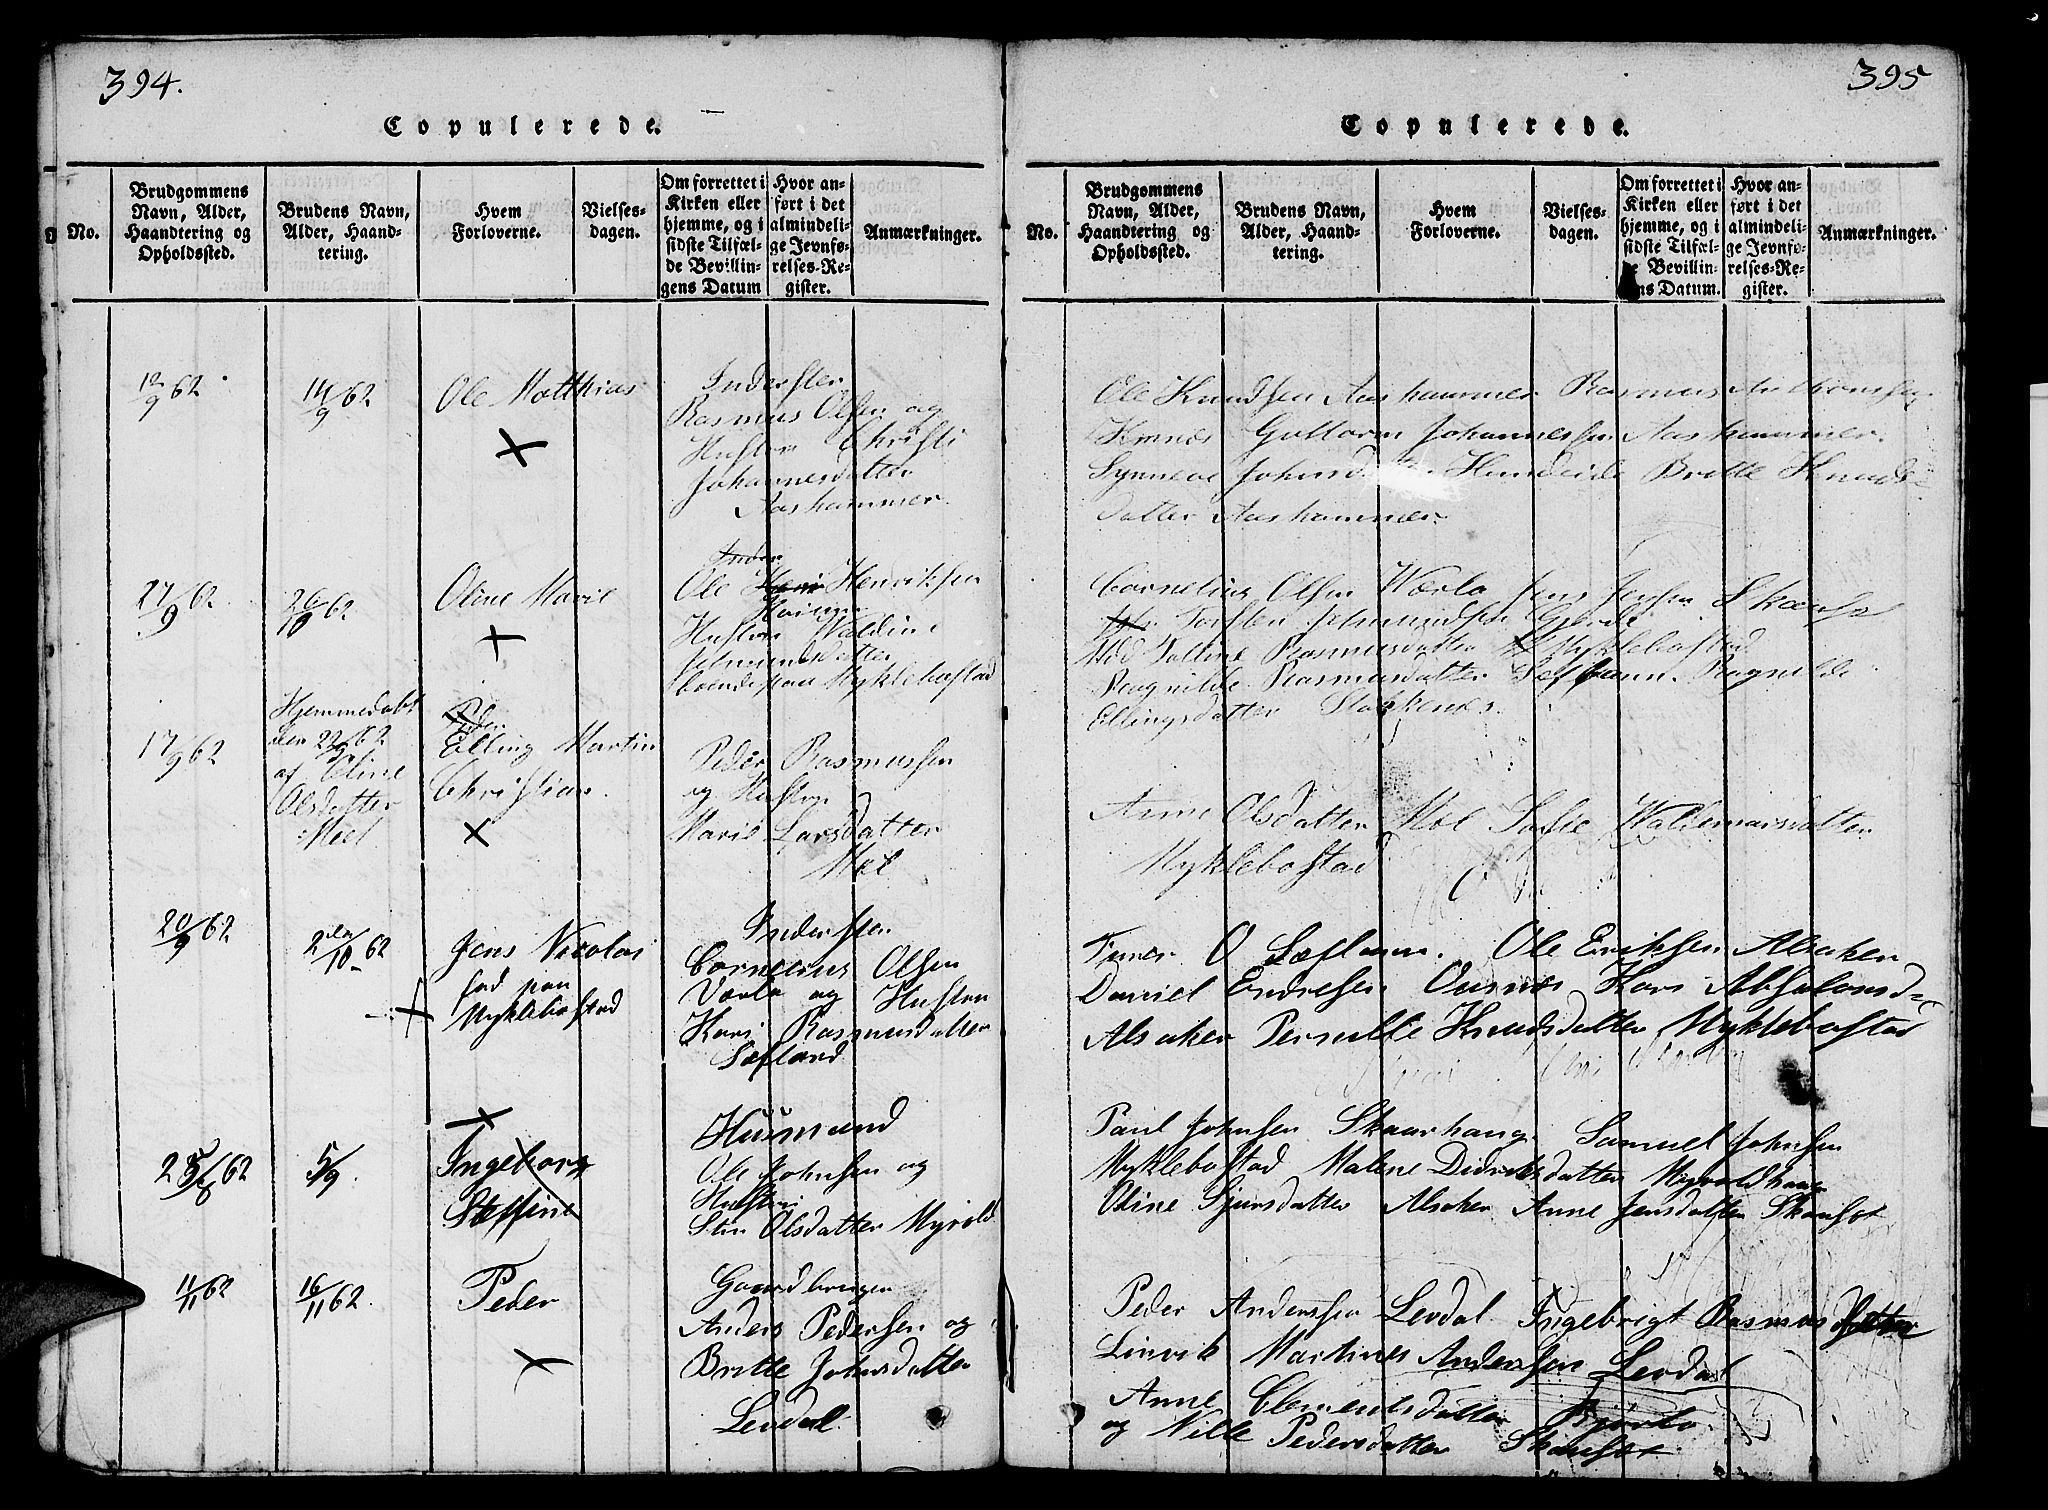 394.
Copulerede.
No.
Brudgommens Navn, Alder, Haandtering og Opholdssted.
Brudens Navn, Alder, Haandtering.
Hvem Forloverne.
Vielsesdagen.
Om forrettet i Kirken eller hjemme, og i sidste Tilfælde Bevillingens Datum
Hvor anført i det almindelige Jevnførelses-Register.
Anmærkninger.
12/9 62.
14/9 62
Ole Matthias
Inderster
Rasmus Olsen og
Hustro Christi
Johannesdatter
Aashammer.
27/9 62.
26/10 62
Oline Marie
Ole Henriksen
Hustro Valdine
boende paa Myklebostad
17/9 62
Hjemmedøbt
den 22/9 62
af Eline
Olsdatter
Moel
Elling Martin
Christian.
Peder Rasmussen
og Hustro
Marie Larsdatter
Mœl
20/9 62
2den/10 62
Jens Nicolai
fød paa
Myklebostad
Indersten
Cornelius Olsen
Værlo og Hustro
Kari Rasmusdatter
Sæfland
25/8 62
5/9.
Ingeborg
Steffine
Huusmand
Ole Johnsen og
Hustro
Stin Olsdatter Myvold
11/11 62
16/11 62.
Peder
Gaardbruger
Anders Pedersen og
Britte Johnsdatter
Levdal
395
Copulerede.
No.
Brudgommens Navn, Alder, Haandtering og Opholdssted.
Brudens Navn, Alder, Haandtering.
Hvem Forloverne.
Vielsesdagen.
Om forrettet i Kirken eller hjemme, og i sidste Tilfælde Bevillingens Datum.
Hvor anført i det almindelige Jevnførelses-Register.
Anmærkninger.
Ole Knudsen Aashammer Rasmus Anthonsen
Guttorm Johannessen Aashammer.
Synneve Johnsd Hundeide Britte Knuds-
datter Aashammer.
Cornelius Olsen Wærlo Jens Jensen Skaufs
Torsten Gjerde
Rasmusdatter Myklebostad
Ragnilde Rasmusdatter Ragnilde
Ellingsdatter Stokkenes.
Anne Olsdatter Mœl Sofie Waldemarsdatter
Myklebostad
O Sæfland. Ole Eriksen Alsaker
Daniel Endresen Ousnes Kari Absalonsd=
Alsaker Pernille Knudsdatter Myklebostad
Paul Johnsen Skaarhaug Samuel Johnsen
Myklebostad Malene Didriksdatter Myvoldhaug
Oline Sjursdatter Alsaker Anne Jensdatter Skaufst
Peder Andersen Levdal Ingebrigt Rasmus
Linvik Martines Andersen Levdal
Anne Clementsdatter Bjørlo
og Nille Pedersdatter Skaufst